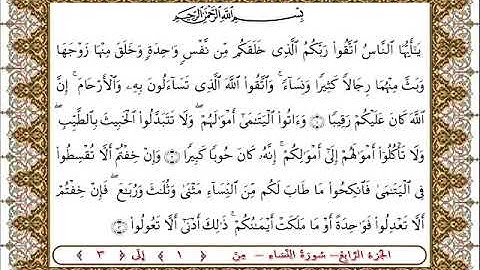 بِسْمِ اللَّهِ الرَّحْمَٰنِ الرَّحِيمِ
يَٰٓأَيُّهَا النَّاسُ اتَّقُوا رَبَّكُمُ الَّذِى خَلَقَكُم مِّن نَّفْسٍ وَٰحِدَةٍ وَخَلَقَ مِنْهَا زَوْجَهَا
وَبَثَّ مِنْهُمَا رِجَالًا كَثِيرًا وَنِسَآءً ۚ وَاتَّقُوا اللَّهَ الَّذِى تَسَآءَلُونَ بِهِۦ وَالْأَرْحَامَ ۚ إِنَّ
اللَّهَ كَانَ عَلَيْكُمْ رَقِيبًا ۝ وَءَاتُوا الْيَتَٰمَىٰٓ أَمْوَٰلَهُمْ ۖ وَلَا تَتَبَدَّلُوا الْخَبِيثَ بِالطَّيِّبِ ۖ
وَلَا تَأْكُلُوٓا أَمْوَٰلَهُمْ إِلَىٰٓ أَمْوَٰلِكُمْ ۚ إِنَّهُۥ كَانَ حُوبًا كَبِيرًا ۝ وَإِنْ خِفْتُمْ أَلَّا تُقْسِطُوا
فِى الْيَتَٰمَىٰ فَانكِحُوا مَا طَابَ لَكُم مِّنَ النِّسَآءِ مَثْنَىٰ وَثُلَٰثَ وَرُبَٰعَ ۖ فَإِنْ خِفْتُمْ
أَلَّا تَعْدِلُوا فَوَٰحِدَةً أَوْ مَا مَلَكَتْ أَيْمَٰنُكُمْ ۚ ذَٰلِكَ أَدْنَىٰٓ أَلَّا تَعُولُوا ۝
الجزء الرّابع - سورة النّساء - مِن ﴿ ١ ﴾ إلَى ﴿ ٣ ﴾